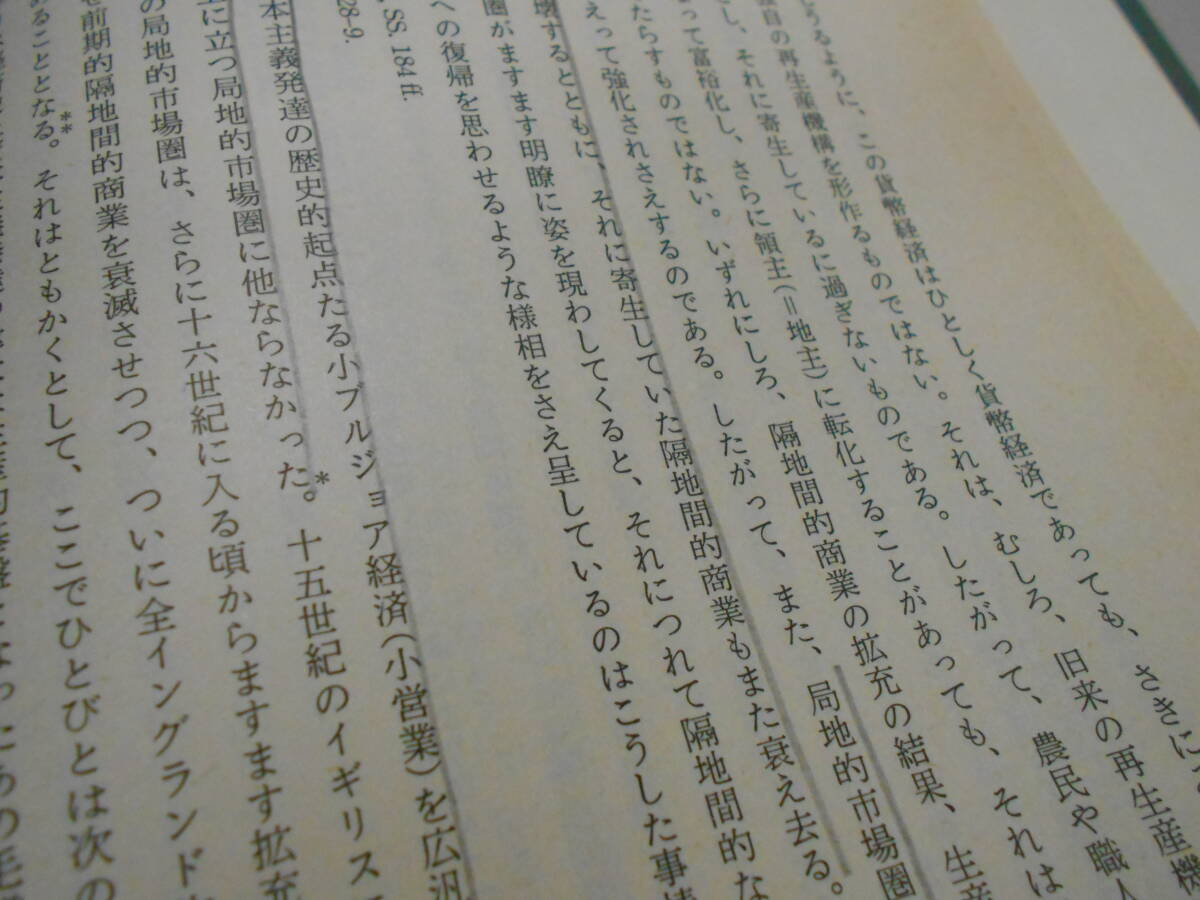 しうるように、この貨幣経済はひとしく貨幣経済であっても、さきに
独自の再生産機構を形作るものではない。それは、むしろ、旧来の再生産機
し、それに寄生しているに過ぎないものである。したがって、農民や職人
って富裕化し、さらに領主(=地主)に転化することがあっても、それは
たらすものではない。いずれにしろ、隔地間的商業の拡充の結果、生産
えって強化されさえするのである。したがって、また、局地的市場圏
壊するとともに、それに寄生していた隔地間的商業もまた衰え去る。
圏がますます明瞭に姿を現わしてくると、それにつれて隔地間的な
への復帰を思わせるような様相をさえ呈しているのはこうした事情
SS. 184 ff.
28-9.
本主義発達の歴史的起点たる小ブルジョア経済(小営業)を広汎
に立つ局地的市場圏に他ならなかった。* 十五世紀のイギリス
の局地的市場圏は、さらに十六世紀に入る頃からますます拡充
前期的隔地間的商業を衰滅させつつ、ついに全イングランド
あることとなる。** それはともかくとして、ここでひとびとは次の